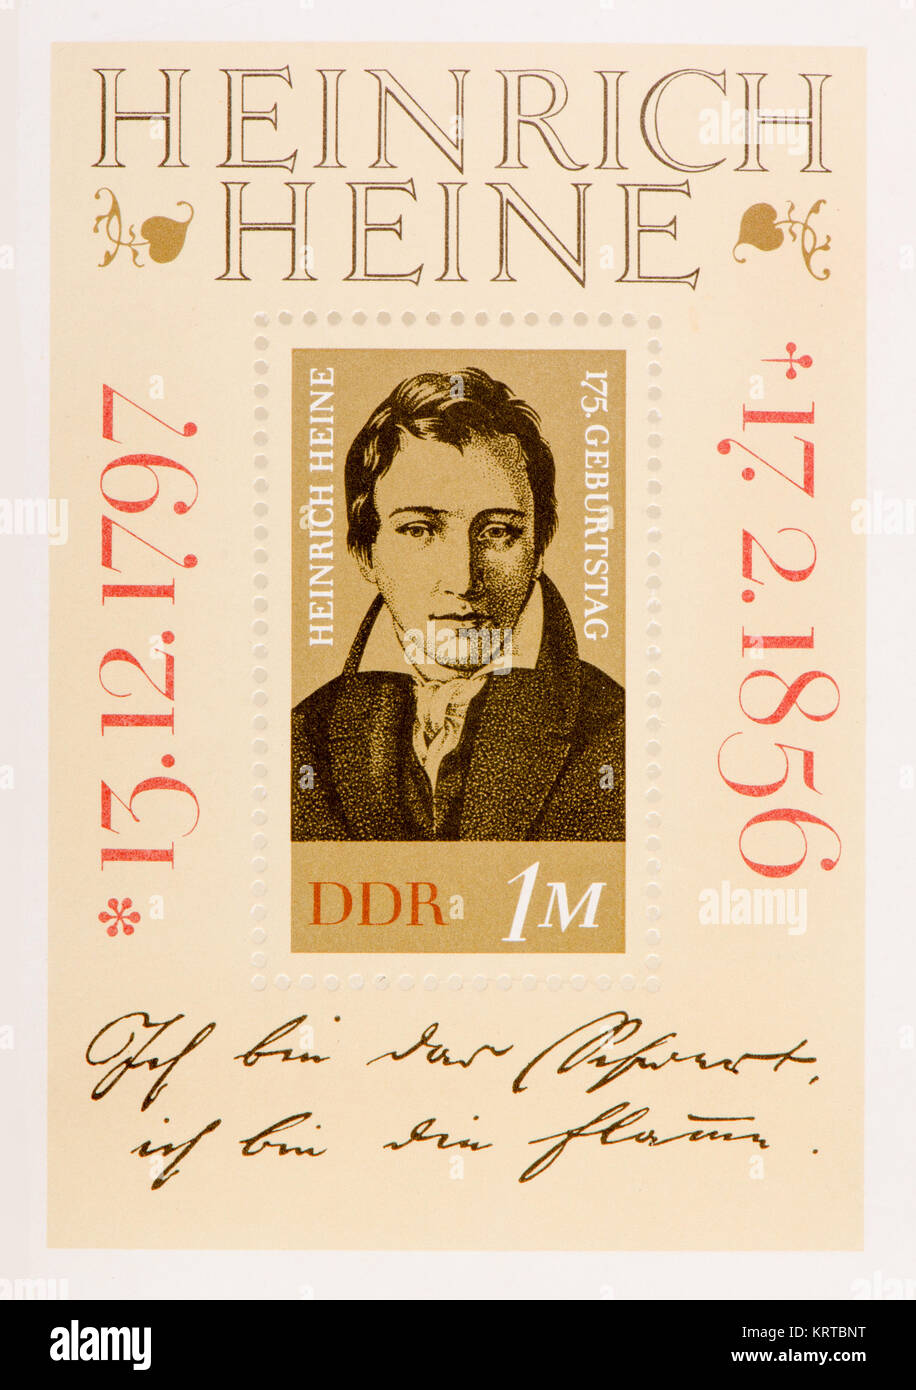 HEINRICH
HEINE
* 13.12.1797
HEINRICH HEINE
175. GEBURTSTAG
† 17. 2. 1856
DDR 1M
Ich bin das Schwert,
ich bin die Flam̅e.
alamy
Image ID: KRTBNT
www.alamy.com